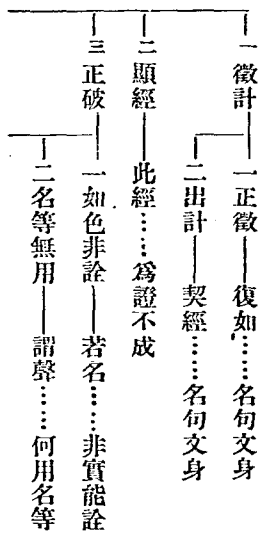 一徵計
一正徵——復如……名句文身
二出計——契經……名句文身
二顯經——此經……爲證不成
三正破
一如色非詮——若名……非實能詮
二名等無用——謂聲……何用名等